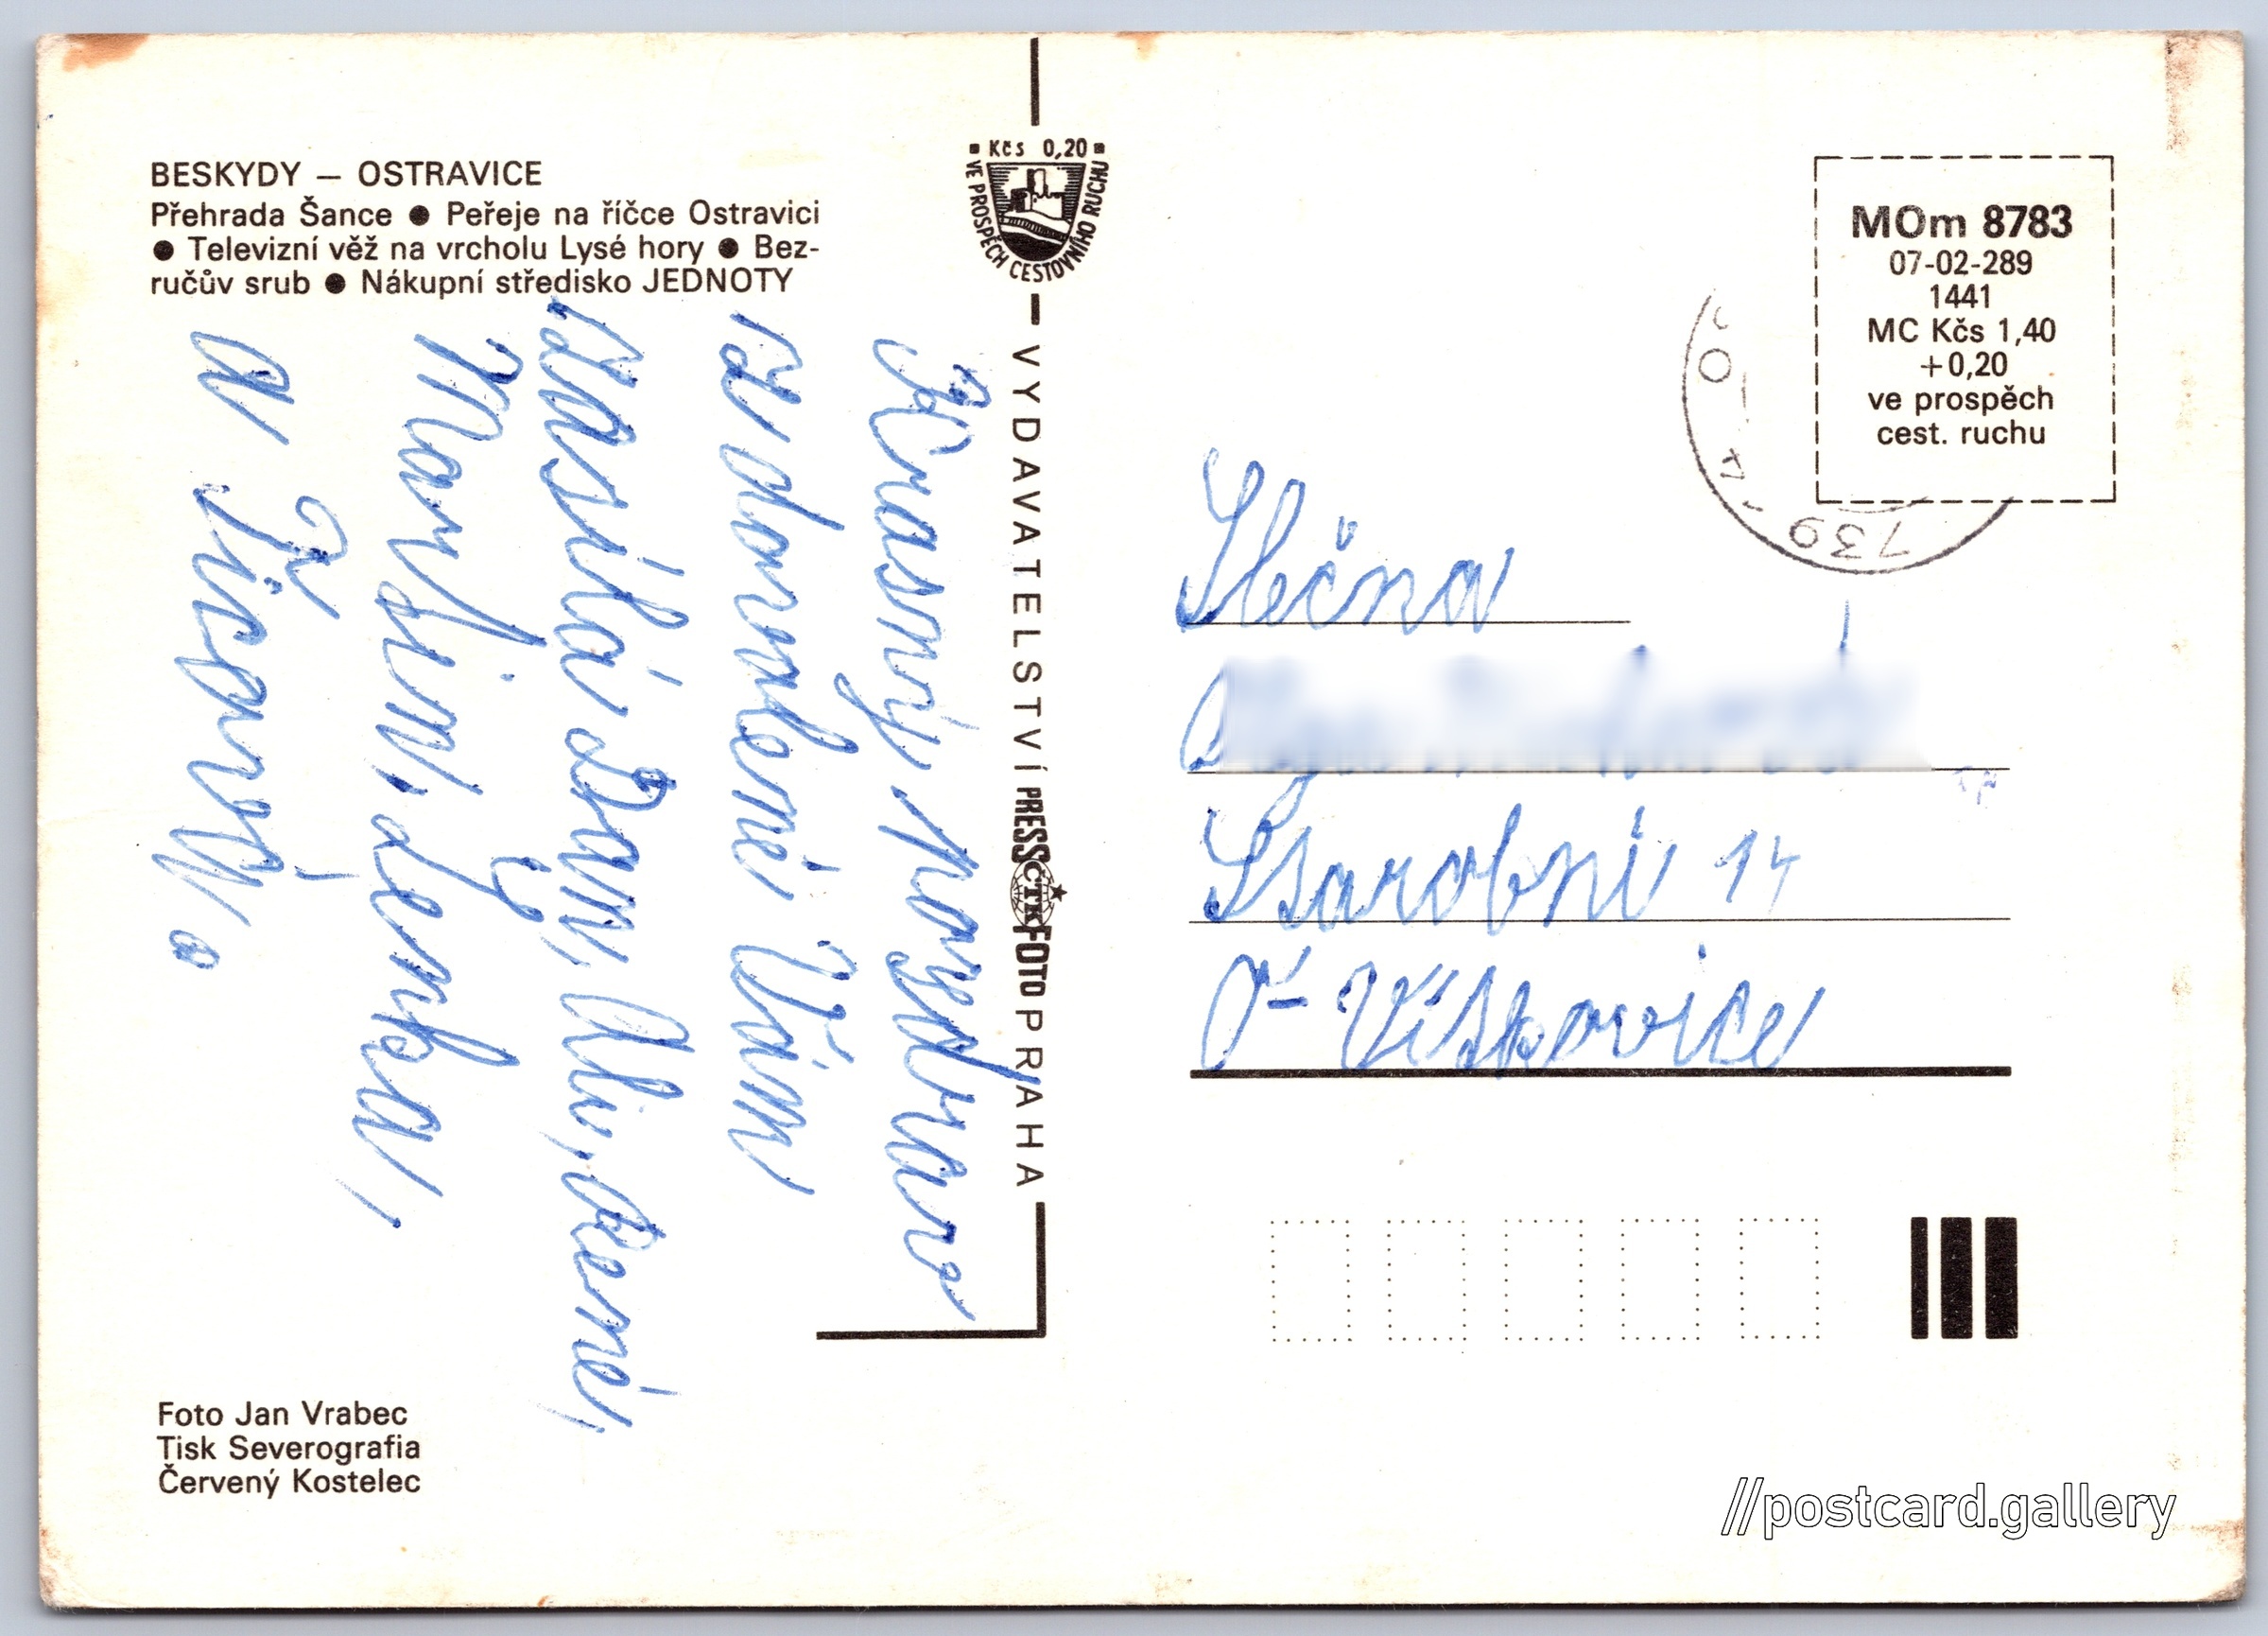 BESKYDY — OSTRAVICE
Přehrada Šance ● Peřeje na říčce Ostravici
● Televizní věž na vrcholu Lysé hory ● Bez-
ručův srub ● Nákupní středisko JEDNOTY
Krásný pozdrav
z dovolené Vám
Dany, Ali,
Martin, Lenka,
a
Foto Jan Vrabec
Tisk Severografia
Červený Kostelec
Kčs 0,20
VE PROSPĚCH CESTOVNÍHO RUCHU
VYDAVATELSTVÍ PRESSČTKFOTO PRAHA
MOm 8783
07-02-289
1441
MC Kčs 1,40
+0,20
ve prospěch
cest. ruchu
739
Slečna
14
O-Výškovice
//postcard.gallery